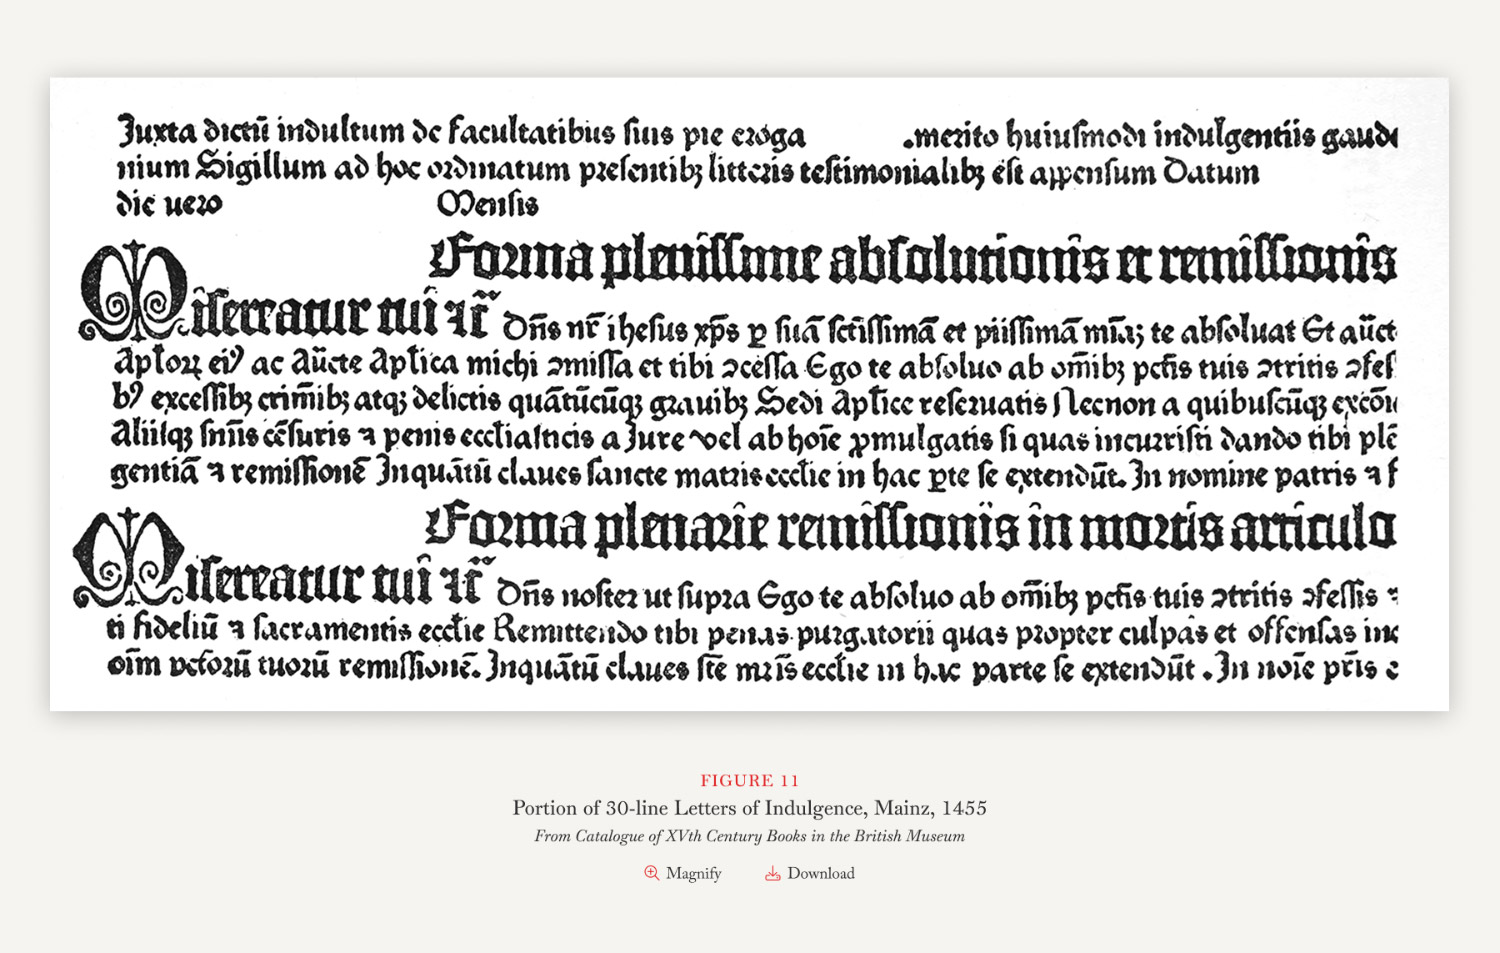 Juxta dictū indultum de facultatibus suis pie eroga .merito huiusmodi indulgentiis gaude
nium Sigillum ad hoc ordinatum presentibꝫ litteris testimonialibꝫ est appensum Datum
die uero Mensis
Forma plenissime absolutionis et remissionis
Misereatur tui ⁊c̄ Dn̄s nr̄ ihesus xp̄s ꝑ suā sc̄tissimā et piissimā mīaꝫ te absoluat Et auc̄t
Apl̄oꝝ eiꝰ ac Auc̄te Apl̄ica michi ꝯmissa et tibi ꝯcessa Ego te absoluo ab om̄ibꝫ pctīs tuis ꝯtritis ꝯfes
bꝰ excessibꝫ crim̄ibꝫ atqꝫ delictis quātūcūqꝫ grauibꝫ Sedi Apl̄ice reseruatis Necnon a quibuscūqꝫ excōi
Aliisqꝫ sn̄iis cēsuris ⁊ penis eccl̄iasticis a Jure vel ab hoīe ꝓmulgatis si quas incurristi dando tibi plē
gentiā ⁊ remissionē Inquātū claues sancte matris eccl̄ie in hac ꝑte se extendūt. In nomine patris ⁊ f
Forma plenarie remissionis in mortis articulo
Misereatur tui ⁊c̄ Dn̄s noster ut supra Ego te absoluo ab om̄ibꝫ pctīs tuis ꝯtritis ꝯfessis ⁊
ti fideliū ⁊ sacramentis eccl̄ie Remittendo tibi penas purgatorii quas propter culpas et offensas inc
oīm pctorū tuorū remissionē. Inquātū claues sc̄te mr̄is eccl̄ie in hac parte se extendūt . In noīe pr̄is
FIGURE 11
Portion of 30-line Letters of Indulgence, Mainz, 1455
From Catalogue of XVth Century Books in the British Museum
Magnify Download